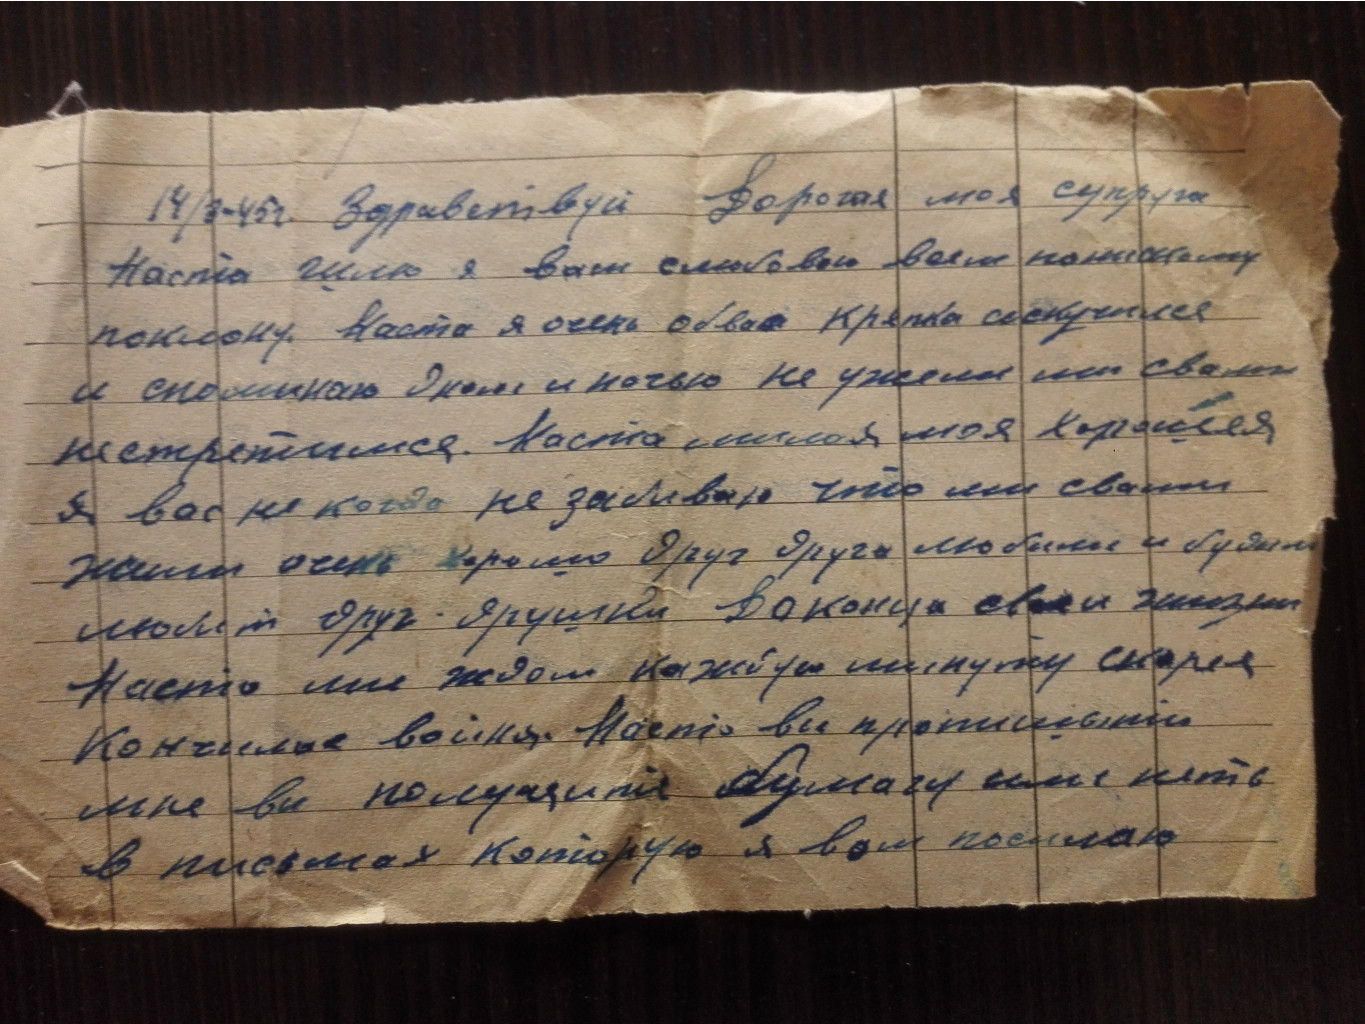 14/3-45г. Здравствуй Дорогая моя супруга
Настя шлю я вам слюбовью воем понискому
поклону. Настя я очень обвас крепка соскучился
и споминаю Днем и ночью не ужели ми свами
нестретимся. Настя милая моя хорошея
Я вас не когда не забиваю что ми свами
жили очень хорошо друг друга любили и будим
любит друг-дружки До конца своеи жизни
Насто ми ждом каждую минуту скорея
Кончилас война. Насто ви пропишити
мне ви получаите бумагу или неть
в письмах которую я вам посилаю